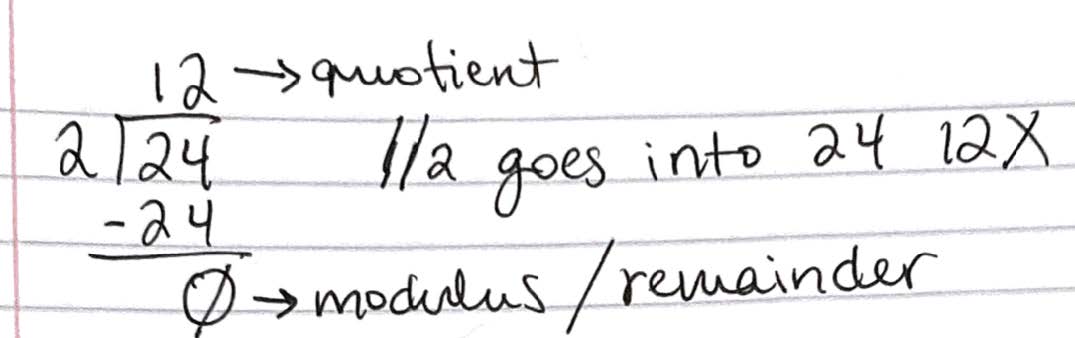 12 → quotient
2)24 //2 goes into 24 12X
-24
0 → modulus / remainder